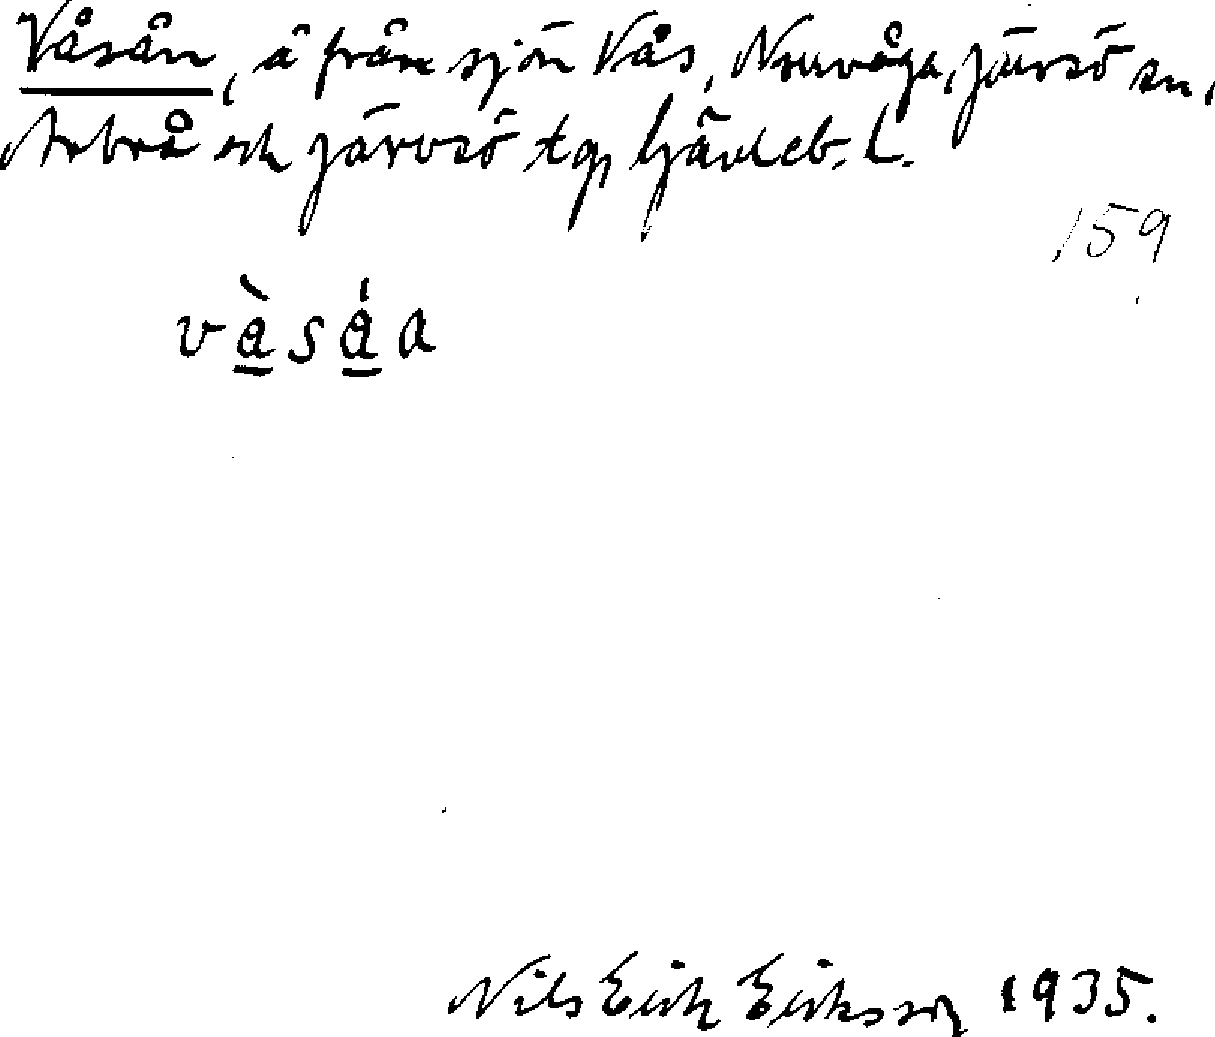 Våsån, å från sjön Vås, Norrvåga, Järvsö sn,
Arbrå och Järvsö tg, Gävleb. L.
159
vàsáa
Nils Erik Eriksson 1935.